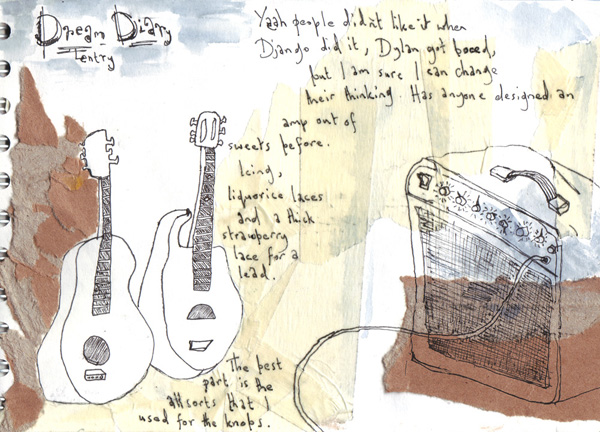 Dream Diary
1 entry
Yaah people didn't like it when
Django did it, Dylan got booed,
but I am sure I can change
their thinking. Has anyone designed an
amp out of
sweets before.
Icing,
liquorice laces
and a thick
strawberry
lace for a
lead.
The best
part is the
allsorts that I
used for the knobs.